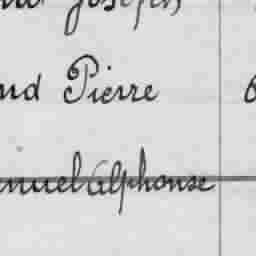 Joseph
nd Pierre 6
nuel Alphonse